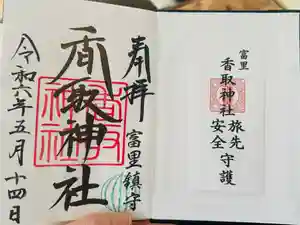 奉拝
富里鎮守
香取神社
令和六年五月十四日
富里
香取神社
旅先安全守護